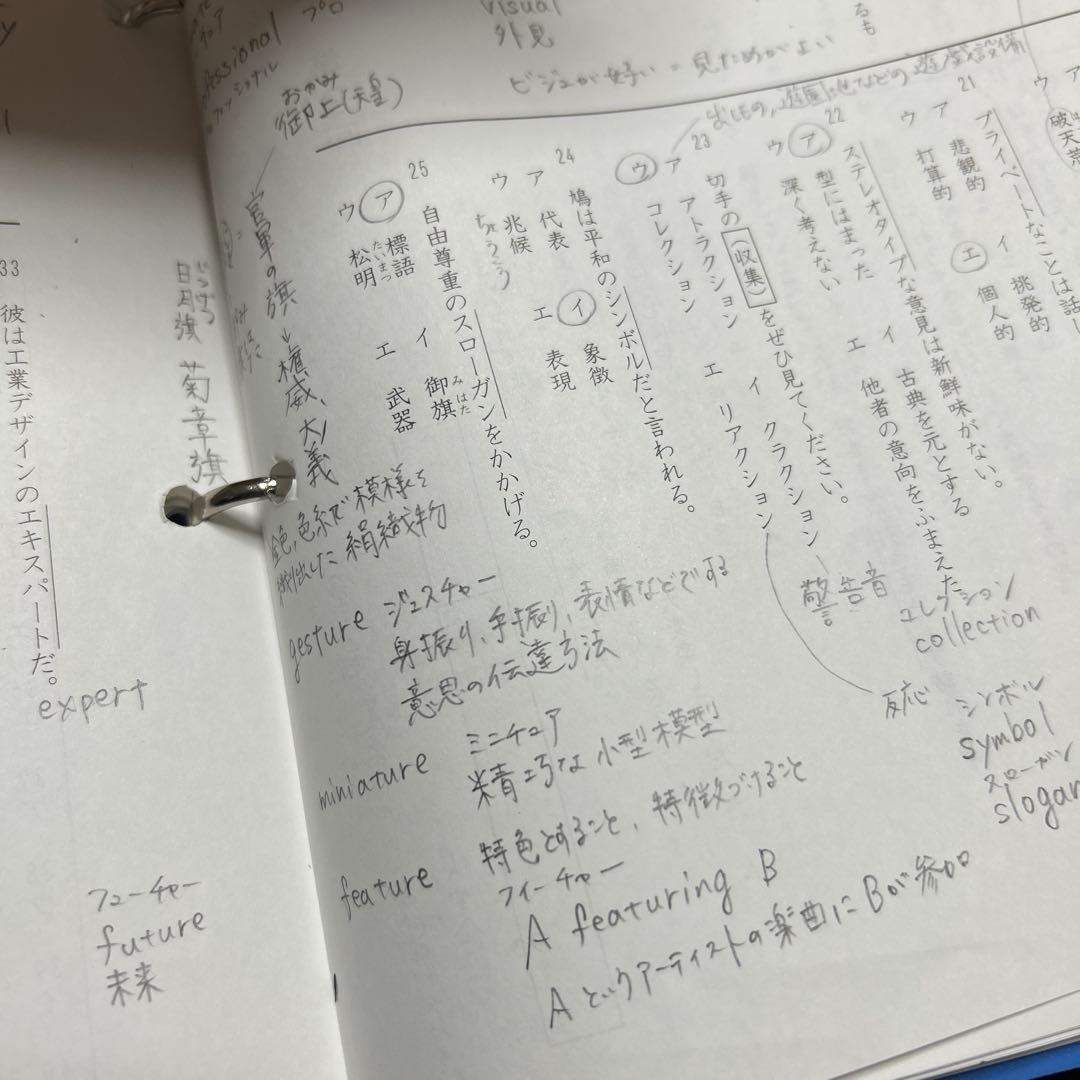 プロ
visual
外見
ビジュが好い = 見ためがよい
るも
おかみ
御上(天皇)
出しもの、遊園地などの遊戯設備
21 プライベートなことは話し
ア 悲観的
イ 挑発的
ウ 打算的
エ 個人的
22 ステレオタイプな意見は新鮮味がない。
ア 型にはまった
イ 古典を元とする
ウ 深く考えない
エ 他者の意向をふまえた
23 切手の(収集)をぜひ見てください。
ア アトラクション
イ クラクション
警告音
ウ コレクション
エ リアクション
反応
24 鳩は平和のシンボルだと言われる。
ア 代表
イ 象徴
ウ 兆候
ちょうこう
エ 表現
25 自由尊重のスローガンをかかげる。
ア 標語
イ 御旗
みはた
ウ 松明
たいまつ
エ 武器
官軍の旗→権威、大義
日月旗
菊章旗
金色、色糸で模様を
織出した絹織物
コレクション
collection
シンボル
symbol
スローガン
slogan
gesture ジェスチャー
身振り、手振り、表情などでする
意思の伝達方法
miniature ミニチュア
精巧な小型模型
feature 特色とすること、特徴づけること
フィーチャー
A featuring B
AというアーティストのA楽曲にBが参加
33 彼は工業デザインのエキスパートだ。
expert
フューチャー
future
未来